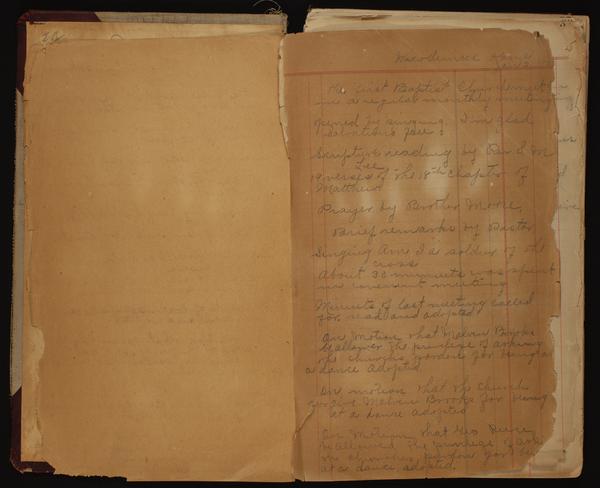 The First Baptist Church met
in a regular monthly meeting
opened by singing. I'm glad
salvations free.
Scripture reading by Rev. S. M
Lee
19 verses of the 18th Chapter of
Matthew
Prayer by Brother Moore.
Brief remarks by Pastor
Singing Am I a soldier of the
cross
About 30 minuets was spent
in covenant meeting
Minuets of last meeting called
for. read and adopted
On Motion that Melvin Brooks
be allowed the privilege of asking
the church's pardon for being at
a dance adopted
On motion that the church
forgive Melvin Brooks for being
at a dance adopted
On Motion that Geo
be allowed the privilege of ask
the churches pardon for be
at a dance, adopted.